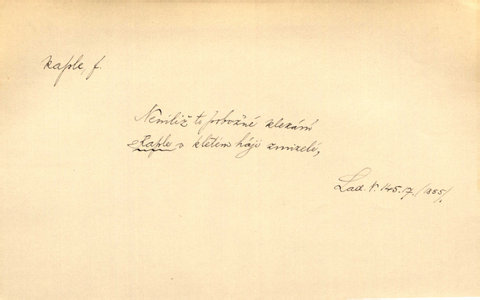 kaple, f.
Není liž to pobožné klekání
Kaple v kletém háji zmizelé,
Lad. V. 145. 17. /1885/.